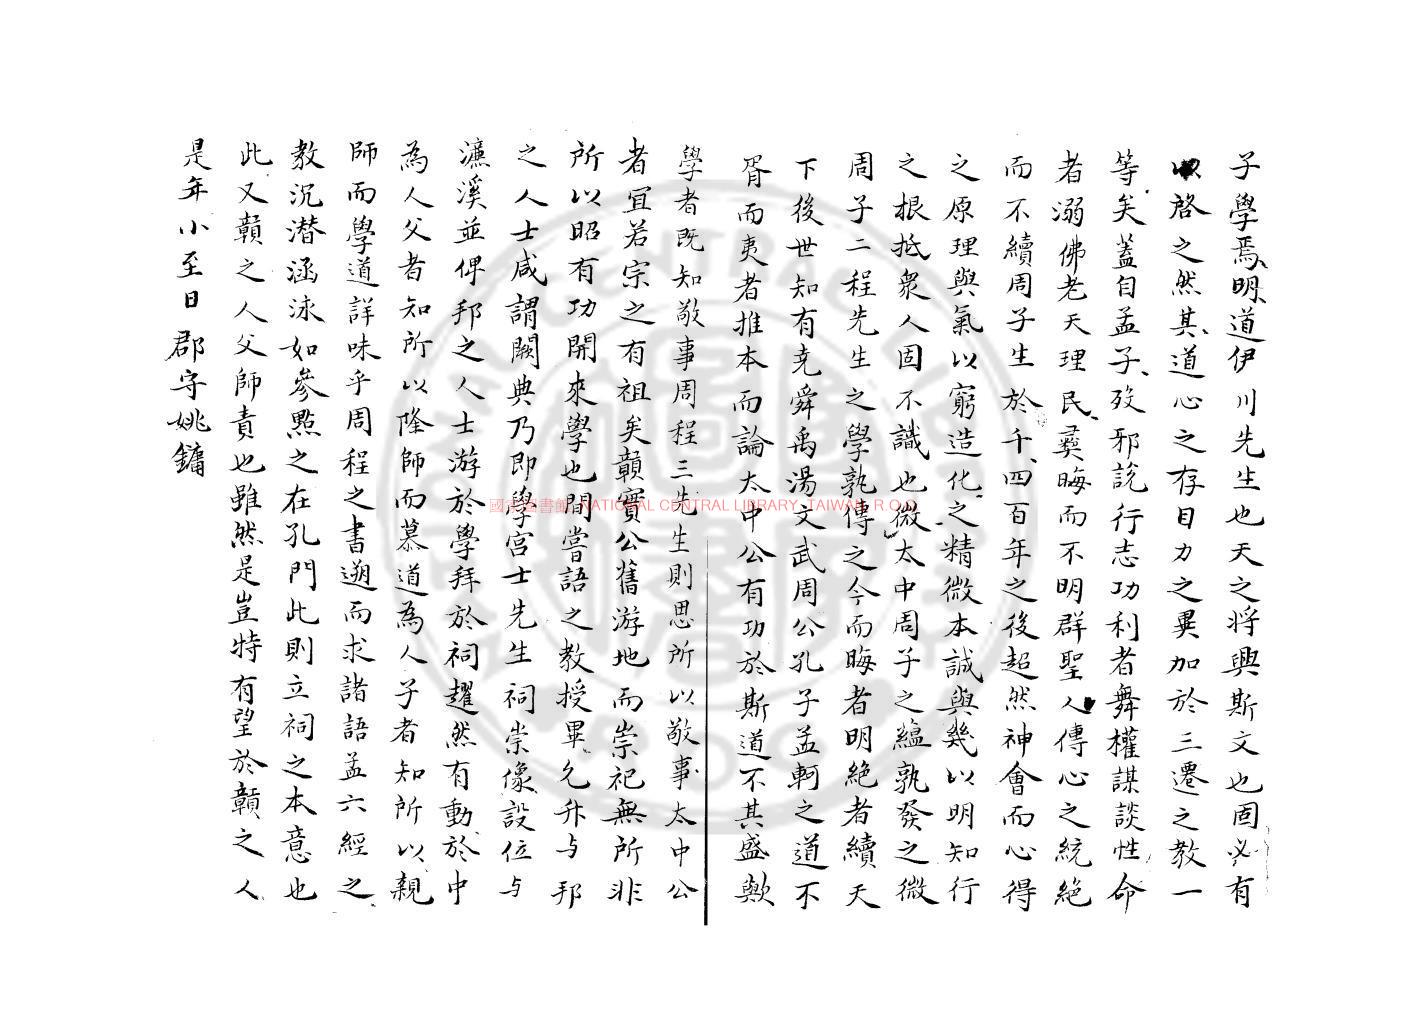 子學焉明道伊川先生也天之將興斯文也固必有
以啓之然其道心之存目力之異加於三遷之教一
等矣蓋自孟子歿邪説行志功利者舞權謀談性命
者溺佛老天理民彝晦而不明群聖人傳心之統絶
而不續周子生於千四百年之後超然神會而心得
之原理與氣以窮造化之精微本誠與幾以明知行
之根抵衆人固不識也微太中周子之緼孰發之微
周子二程先生之學孰傳之今而晦者明絶者續天
下後世知有堯舜禹湯文武周公孔子孟軻之道不
胥而夷者推本而論太中公有功於斯道不其盛歟
學者既知敬事周程三先生則思所以敬事太中公
者宜若宗之有祖矣贛實公舊游地而崇祀無所非
所以昭有功開來學也間嘗語之教授畢允升与邦
之人士咸謂闕典乃即學宮士先生祠崇像設位与
濂溪並俾邦之人士游於學拜於祠躍然有動於中
為人父者知所以隆師而慕道為人子者知所以親
師而學道詳味乎周程之書遡而求諸語孟六經之
教沉潜涵泳如參點之在孔門此則立祠之本意也
此又贛之人父師責也雖然是豈特有望於贛之人
是年小至日郡守姚鏞
國家圖書館 NATIONAL CENTRAL LIBRARY, TAIWAN, R.O.C